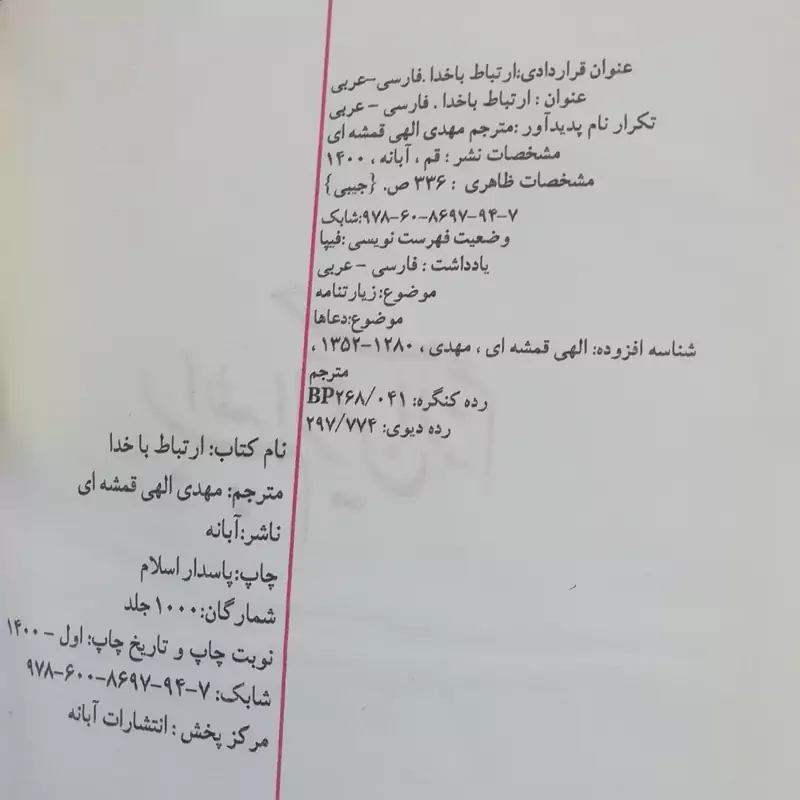 عنوان قراردادی:ارتباط باخدا .فارسی-عربی
عنوان : ارتباط باخدا . فارسی - عربی
تکرار نام پدیدآور :مترجم مهدی الهی قمشه ای
مشخصات نشر : قم ، آبانه ، ۱۴۰۰
مشخصات ظاهری : ۳۳۶ ص. {جیبی}
۹۷۸-۶۰-۸۶۹۷-۹۴-۷:شابک
وضعیت فهرست نویسی :فیپا
یادداشت : فارسی - عربی
موضوع:زیارتنامه
موضوع:دعاها
شناسه افزوده: الهی قمشه ای ، مهدی ، ۱۲۸۰-۱۳۵۲ ،
مترجم
رده کنگره: BP۲۶۸/۰۴۱
رده دیوی: ۲۹۷/۷۷۴
نام کتاب: ارتباط با خدا
مترجم: مهدی الهی قمشه ای
ناشر:آبانه
چاپ:پاسدار اسلام
شمارگان:۱۰۰۰ جلد
نوبت چاپ و تاریخ چاپ: اول - ۱۴۰۰
شابک: ۷-۹۴-۸۶۹۷-۶۰۰-۹۷۸
مرکز پخش : انتشارات آبانه